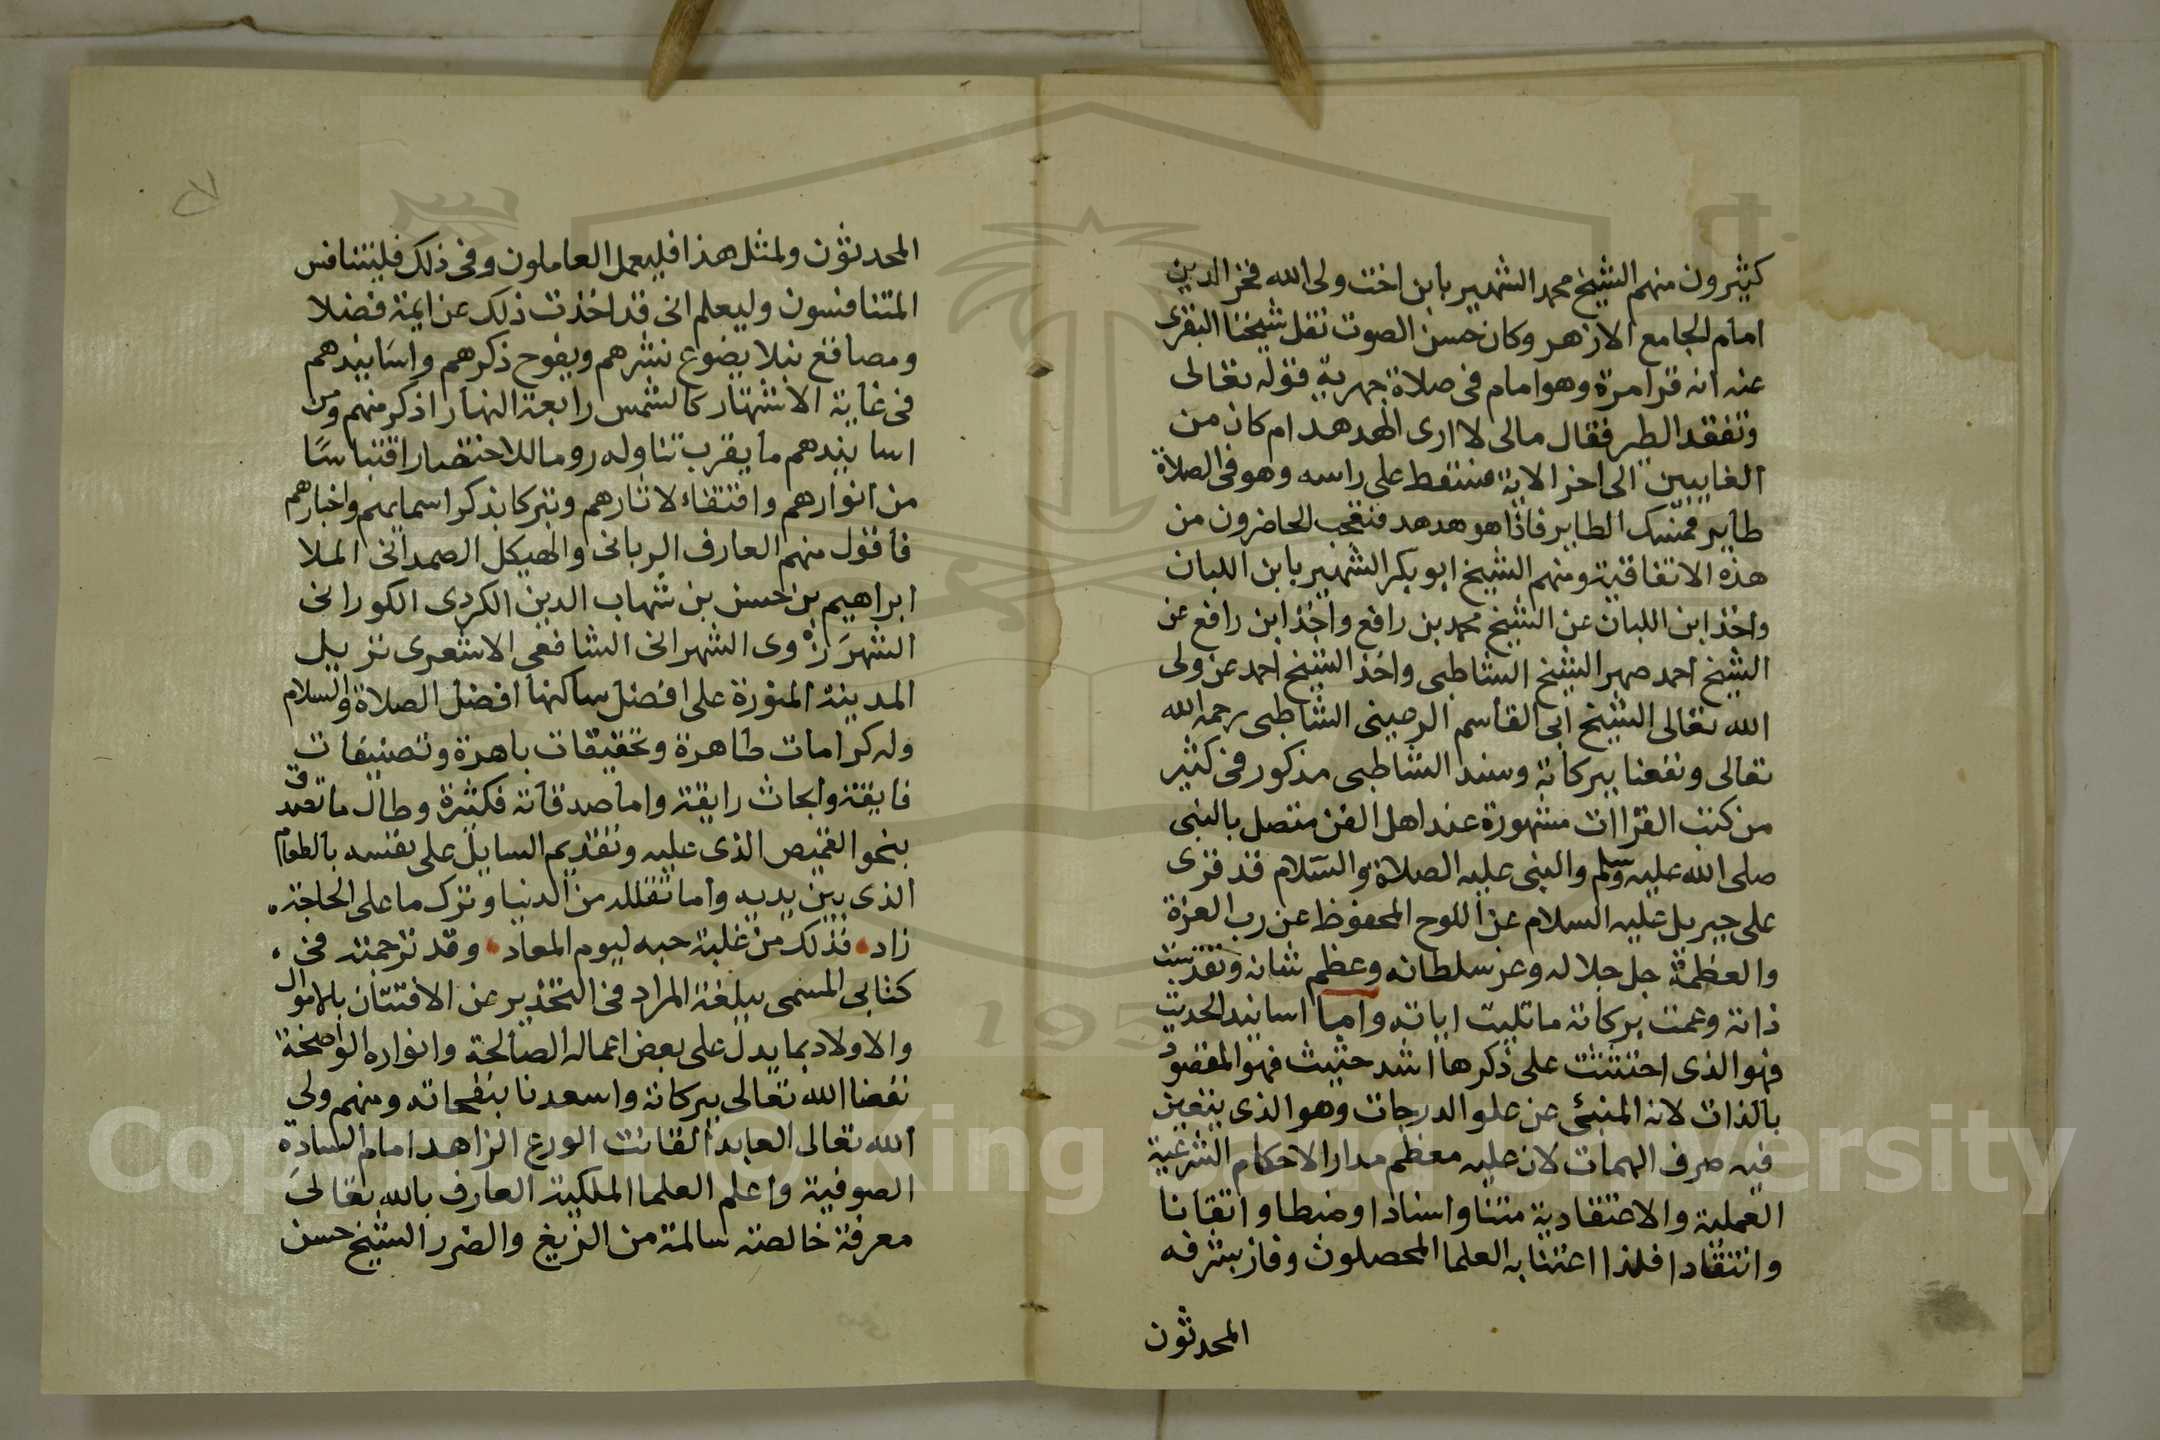 كثيرون منهم الشيخ محمد الشهير بابن اخت ولى الله فخر الدين
امام الجامع الازهر وكان حسن الصوت نقل شيخنا البقرى
عنه انه قرا مرة وهو امام فى صلاة جهرية قوله تعالى
وتفقد الطير فقال مالى لا ارى الهدهد ام كان من
الغايبين الى اخر الاية فسقط على راسه وهو فى الصلاة
طاير فمسك الطاير فاذا هو هدهد فتعجب الحاضرون من
هذه الاتفاقية ومنهم الشيخ ابو بكر الشهير بابن اللبان
واخذ ابن اللبان عن الشيخ محمد بن رافع واخذ ابن رافع عن
الشيخ احمد صهر الشيخ الشاطبى واخذ الشيخ احمد عن ولى
الله تعالى الشيخ ابى القاسم الرعينى الشاطبى رحمه الله
تعالى ونفعنا ببركاته وسند الشاطبى مذكور فى كثير
من كتب القراات مشهورة عند اهل الفن متصل بالنبى
صلى الله عليه وسلم والنبى عليه الصلاة والسلام قد قرى
على جبريل عليه السلام عن اللوح المحفوظ عن رب العزة
والعظمة جل جلاله وعز سلطانه وعظم شانه وتقدست
ذاته وعمت بركاته ما تليت اياته واما اسانيد الحديث
فهو الذى احتثثت على ذكرها اشد حثيث فهو المقصود
بالذات لانه المنبئ عن علو الدرجات وهو الذى يتعين
فيه صرف الهمات لان عليه معظم مدار الاحكام الشرعية
العملية والاعتقادية متنا واسنادا وضبطا واتقانا
وانتقادا فلذا اعتنا به العلما المحصلون وفاز بشرفه
المحدثون
المحدثون ولمثل هذا فليعمل العاملون وفى ذلك فليتنافس
المتنافسون وليعلم انى قد اخذت ذلك عن ايمة فضلا
ومصاقع نبلا يضوع نشرهم ويفوح ذكرهم واسانيدهم
فى غاية الاشتهار كالشمس رابعة النهار اذكر منهم ومن
اسانيدهم ما يقرب تناوله روما للاختصار اقتباسًا
من انوارهم واقتفاء لاثارهم وتبركا بذكر اسمايهم واخبارهم
فاقول منهم العارف الربانى والهيكل الصمدانى الملا
ابراهيم بن حسن بن شهاب الدين الكردى الكورانى
الشهرَزوى الشهرانى الشافعى الاشعرى نزيل
المدينة المنورة على افضل ساكنها افضل الصلاة والسلام
وله كرامات ظاهرة وتحقيقات باهرة وتصنيفات
فايقة وابحاث رايقة واما صدقاته فكثيرة وطال ما تصدق
بنحو القميص الذى عليه وتقديم السايل على نفسه بالطعام
الذى بين يديه واما تقلله من الدنيا وترك ما على الحاجة
زاد فذلك من غلبة حبه ليوم المعاد وقد ترجمته فى
كتابى المسمى ببلغة المراد فى التحذير عن الافتتان بالاموال
والاولاد بما يدل على بعض اعماله الصالحة وانواره الواضحة
نفعنا الله تعالى ببركاته واسعدنا بنفحاته ومنهم ولى
الله تعالى العابد القانت الورع الزاهد امام السادة
الصوفية واعلم العلما الملكية العارف بالله تعالى
معرفة خالصة سالمة من الزيغ والضرر الشيخ حسن
Copyright © King Saud University